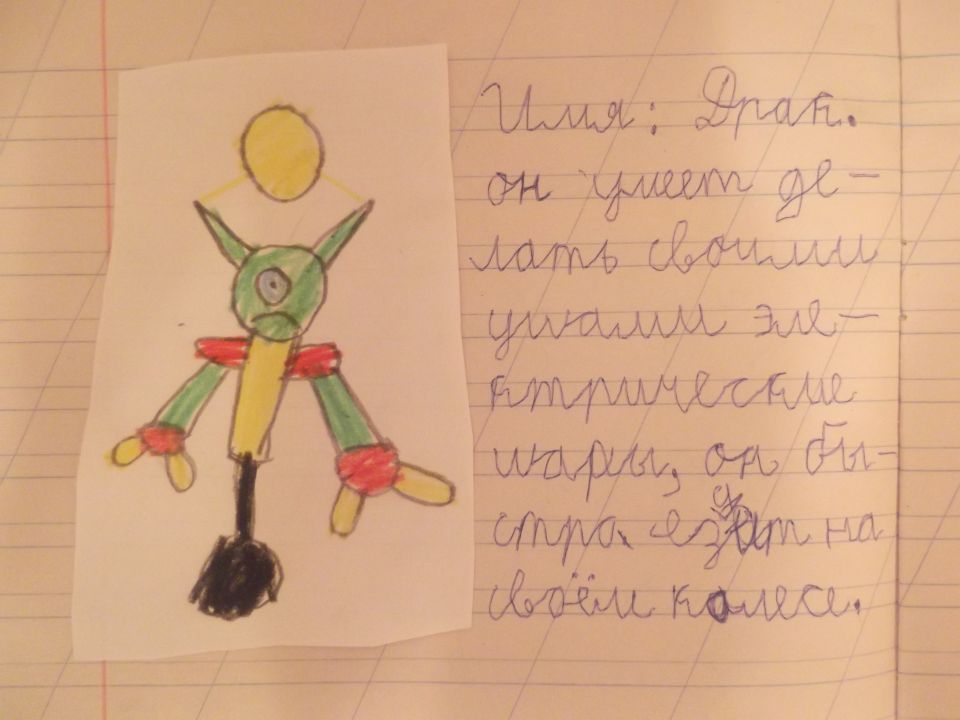 Имя: Драк.
он умеет де-
лать своими
ушами эле-
ктрические
шары, он бы-
стро на
своём колесе.